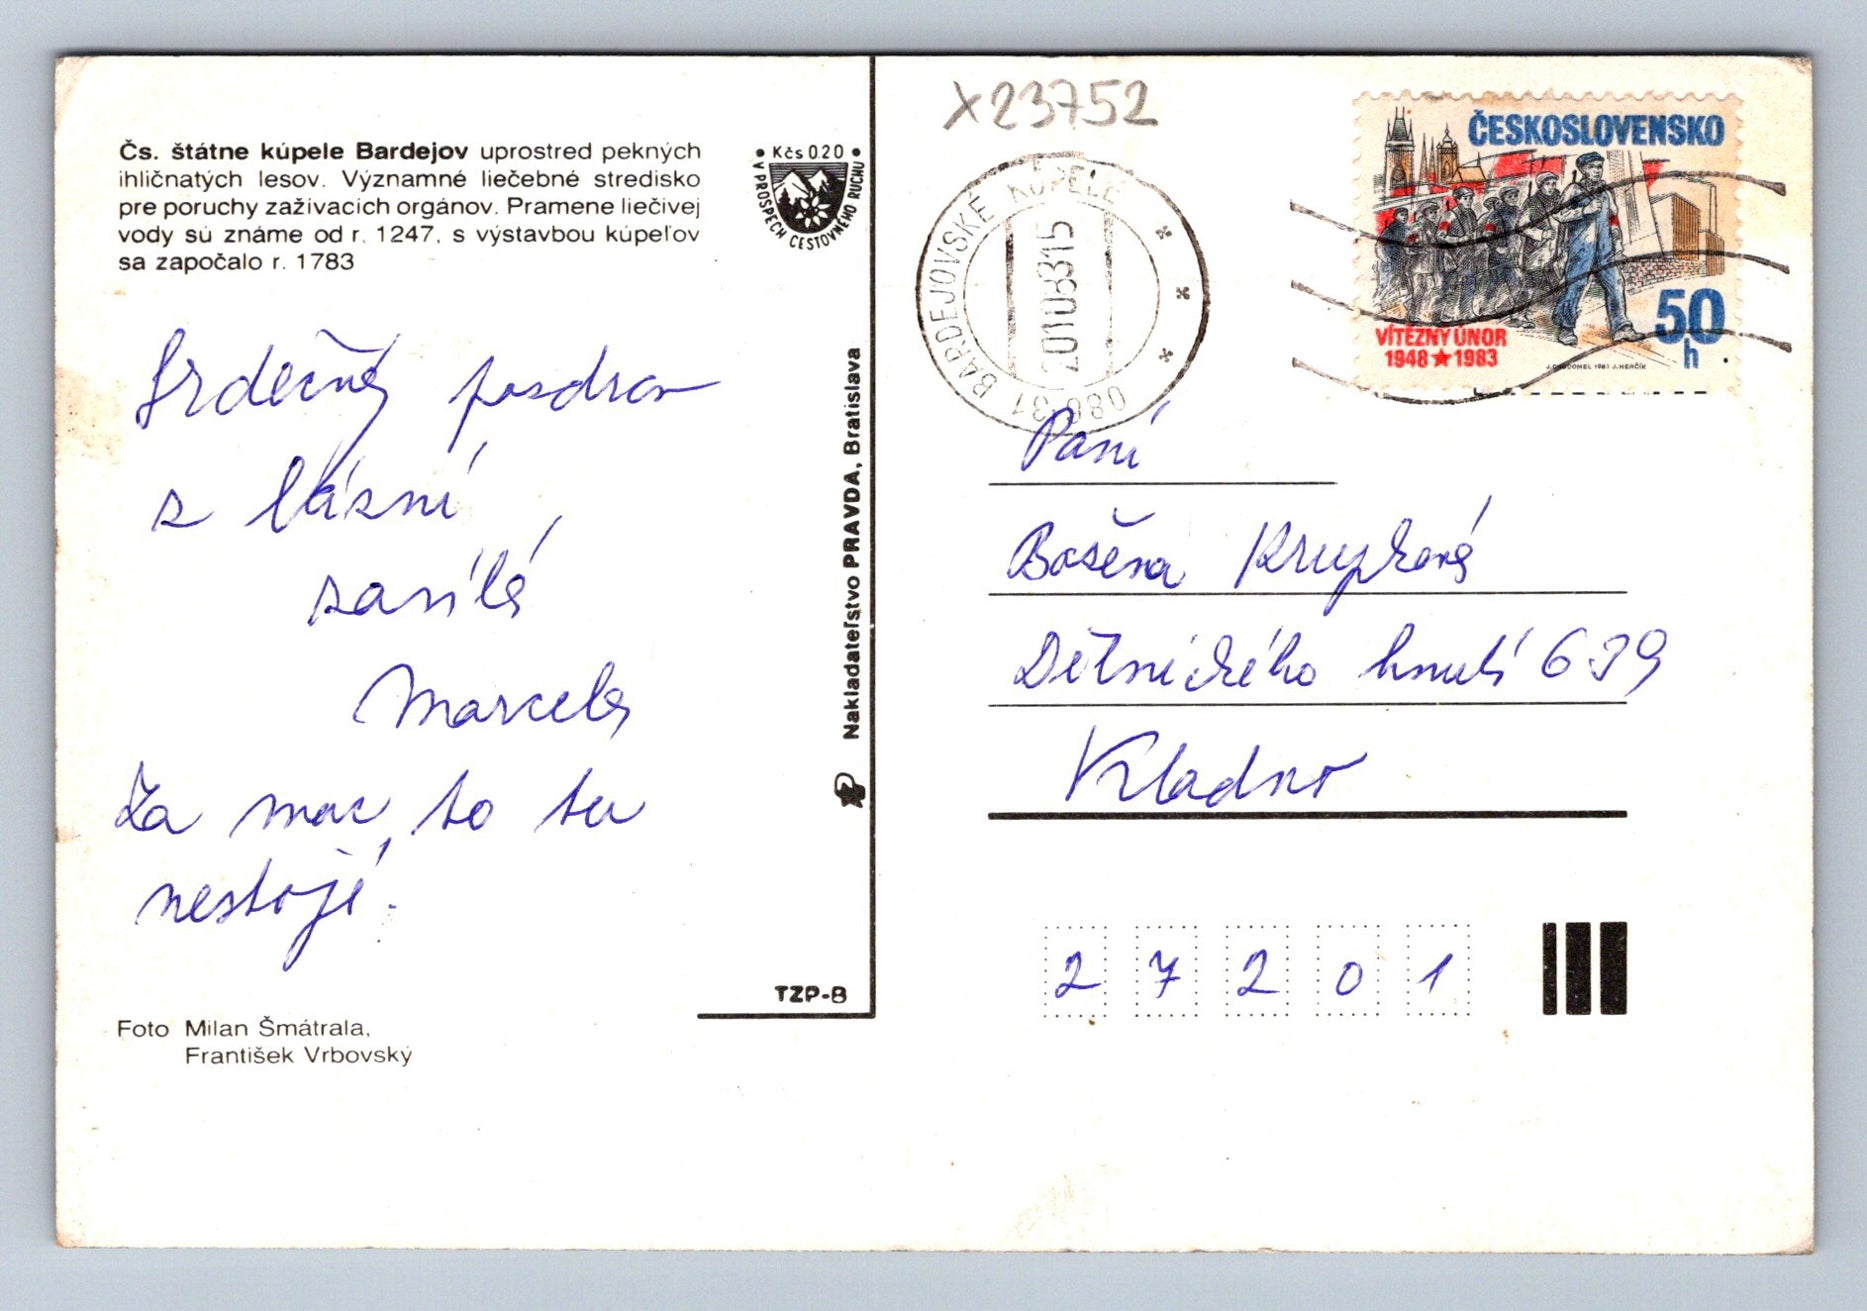 Čs. štátne kúpele Bardejov uprostred pekných
ihličnatých lesov. Významné liečebné stredisko
pre poruchy zažívacích orgánov. Pramene liečivej
vody sú známe od r. 1247, s výstavbou kúpeľov
sa započalo r. 1783
• Kčs 0.20 •
V PROSPECH CESTOVNÉHO RUCHU
Srdečný pozdrav
z lázní
zasílá
Marcela
Za moc to tu
nestojí.
Foto Milan Šmátrala,
František Vrbovský
Nakladateľstvo PRAVDA, Bratislava
TZP-8
X23752
BARDEJOVSKÉ KÚPELE
086 31
20.10.83 15
ČESKOSLOVENSKO
VÍTĚZNÝ ÚNOR
1948 ★ 1983
50
h
J. CHUDOMEL 1983 J. HERČÍK
Paní
Božena Krupková
Dělnického hnutí 639
Kladno
27201